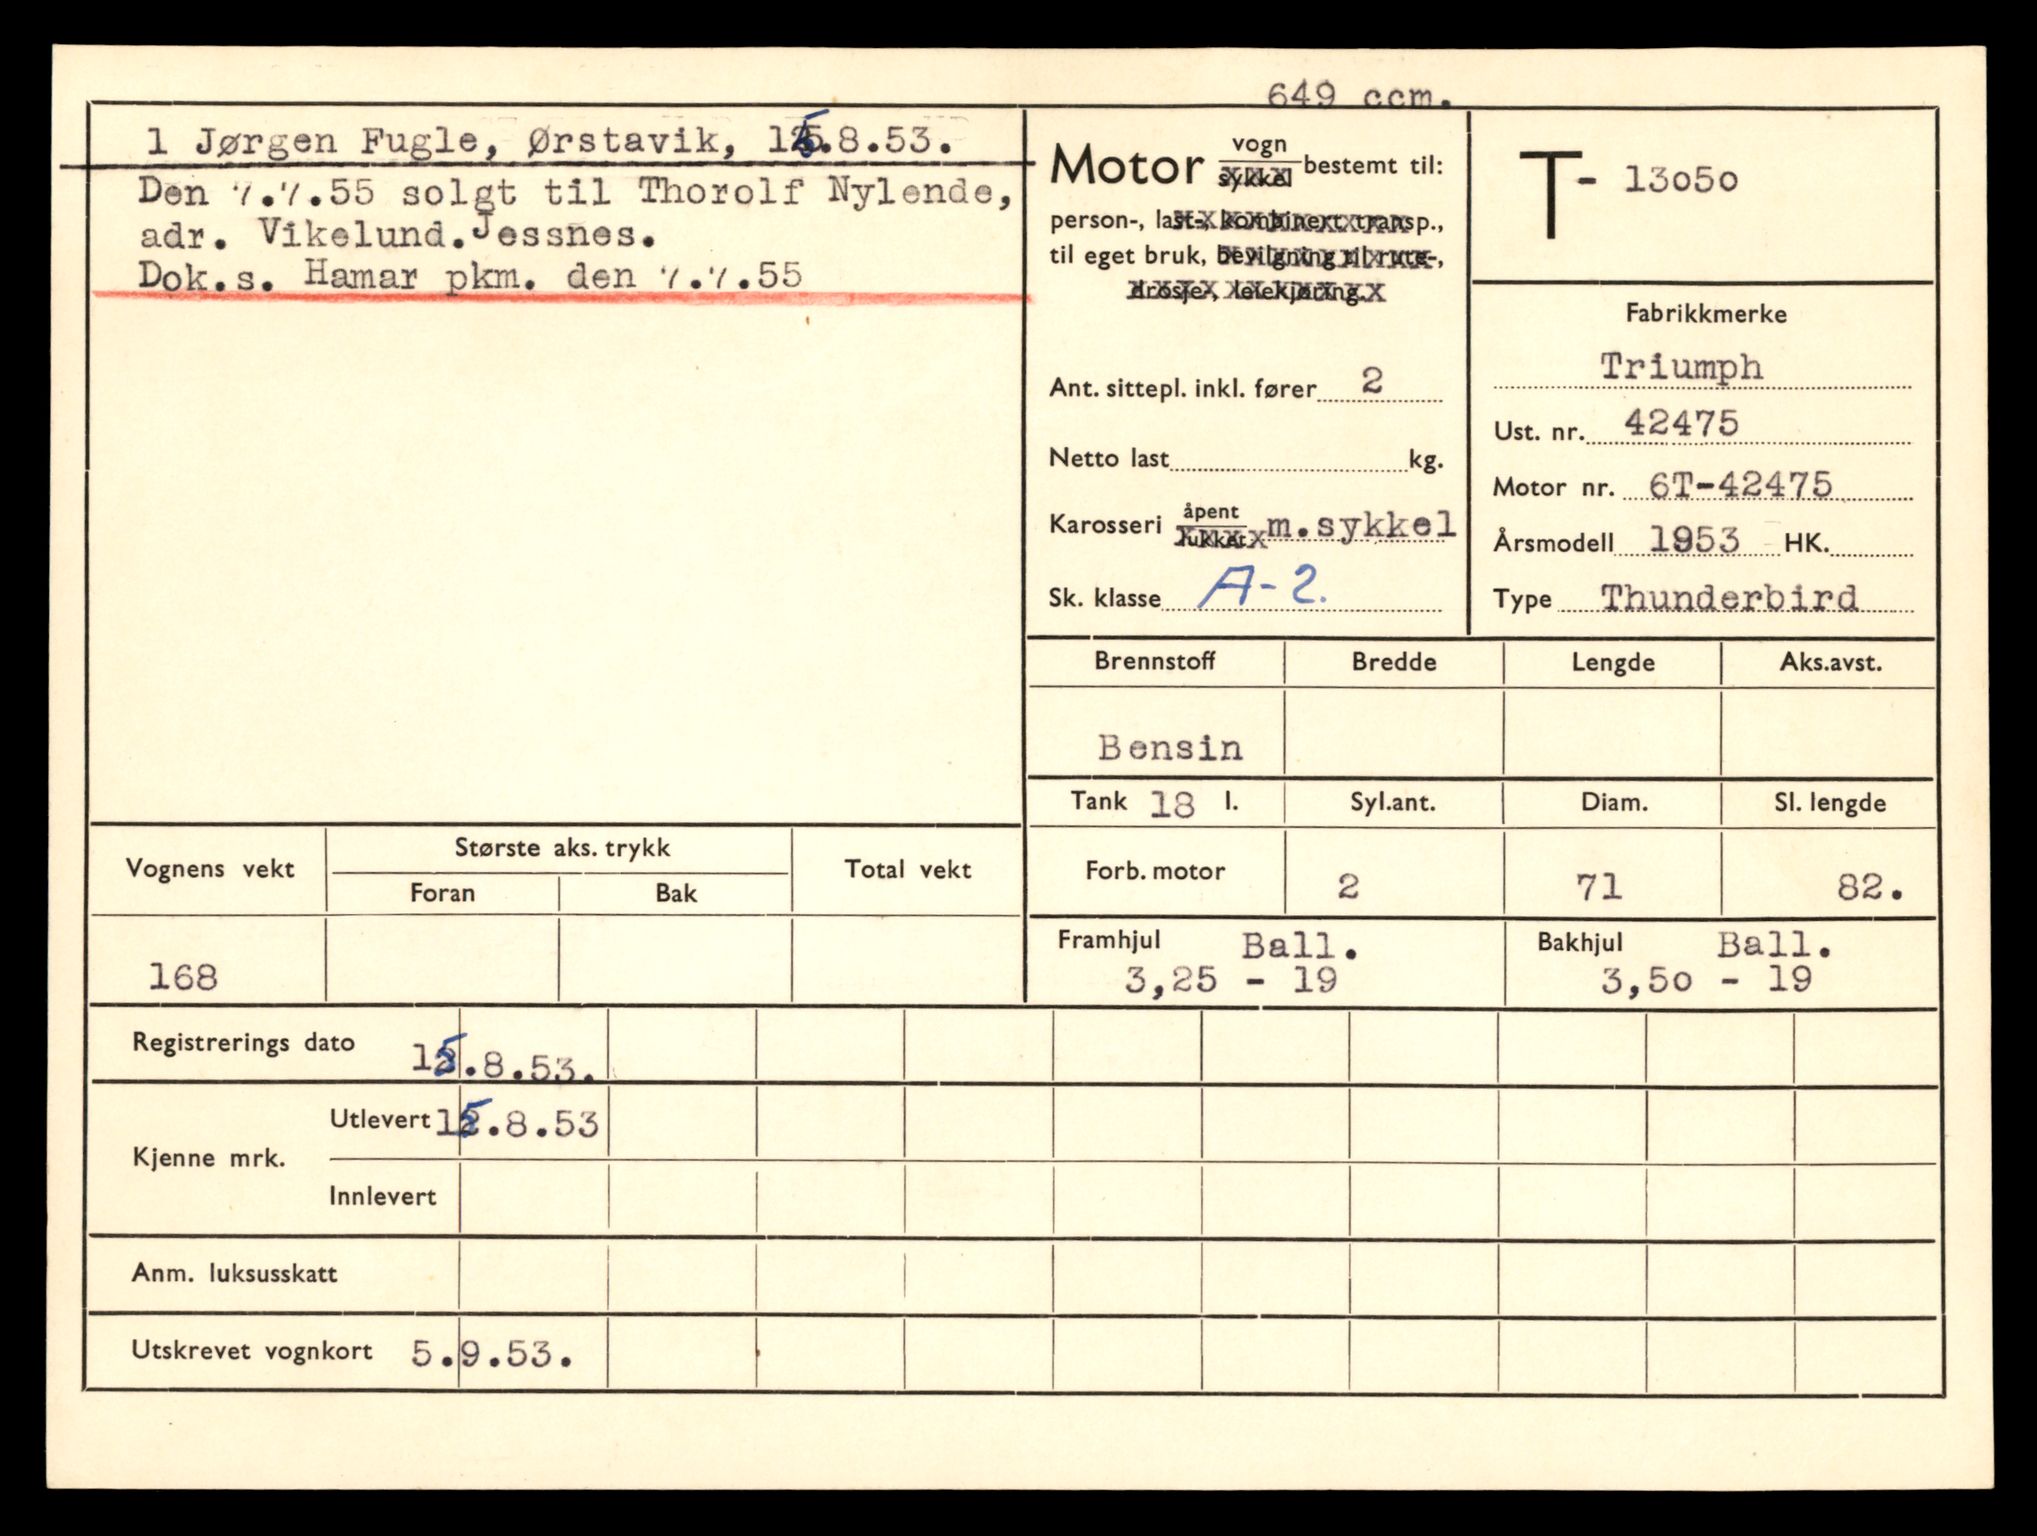 649 ccm.
1 Jørgen Fugle, Ørstavik, 15.8.53.
Den 7.7.55 solgt til Thorolf Nylende,
adr. Vikelund.Jessnes.
Dok.s. Hamar pkm. den 7.7.55
Motor vogn sykkel bestemt til:
person-, last-, kombinert transp.,
til eget bruk, bevilgning til rute-,
drosje-, leiekjøring.
Ant. sittepl. inkl. fører 2
Netto last kg.
Karosseri åpent lukket m.sykkel
Sk. klasse A-2.
T- 13050
Fabrikkmerke
Triumph
Ust. nr. 42475
Motor nr. 6T-42475
Årsmodell 1953 HK.
Type Thunderbird
Brennstoff Bredde Lengde Aks.avst.
Bensin
Tank 18 l. Syl.ant. Diam. Sl. lengde
Forb. motor 2 71 82.
Framhjul Ball. Bakhjul Ball.
3,25 - 19 3,50 - 19
Vognens vekt Største aks. trykk Total vekt
Foran Bak
168
Registrerings dato 15.8.53.
Kjenne mrk.
Utlevert 15.8.53
Innlevert
Anm. luksusskatt
Utskrevet vognkort 5.9.53.